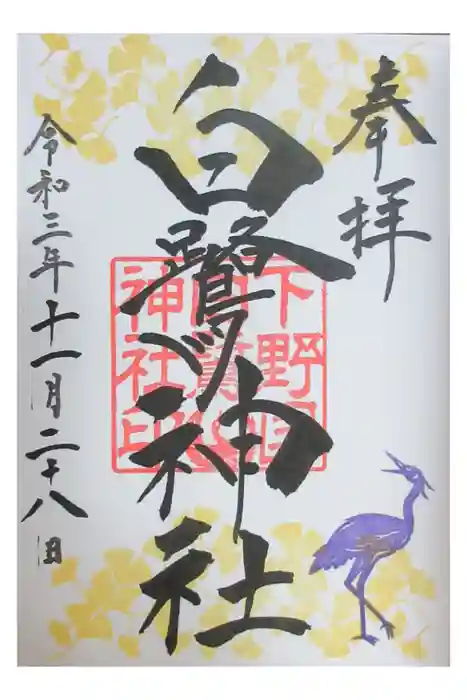 奉拝
白鷺神社
下野国
白鷺
神社印
令和三年十一月二十八日